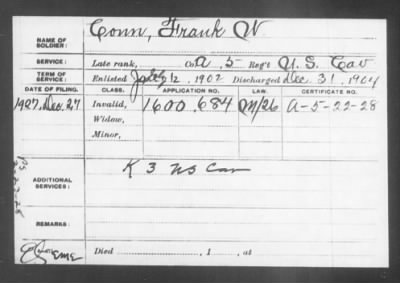 NAME OF SOLDIER: Conn, Frank W.
SERVICE: Late rank, Co. A, 5 Reg't U.S. Cav
TERM OF SERVICE: Enlisted July 12, 1902 Discharged Dec. 31, 1904
DATE OF FILING. CLASS. APPLICATION NO. LAW. CERTIFICATE NO.
1927, Dec. 27 Invalid, 1600.684 M/26 A-5-22-28
Widow,
Minor,
ADDITIONAL SERVICES: K 3 US Cav
REMARKS:
EME Died , 1 , at